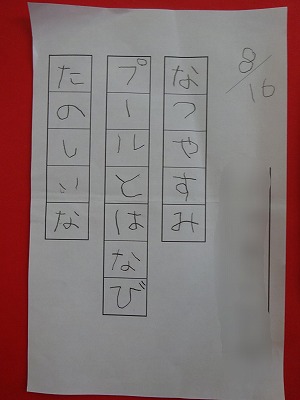 8/16
なつやすみ
プールとはなび
たのしいな